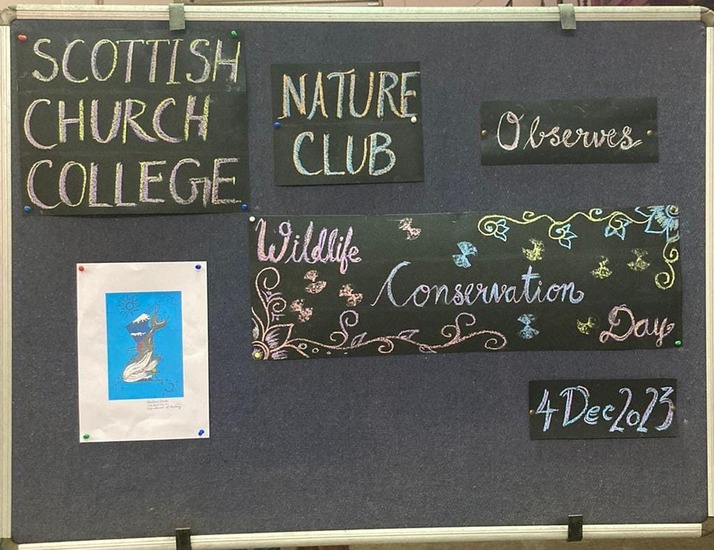 SCOTTISH
CHURCH
COLLEGE
NATURE
CLUB
Observes
Wildlife
Conservation
Day
4 Dec 2023